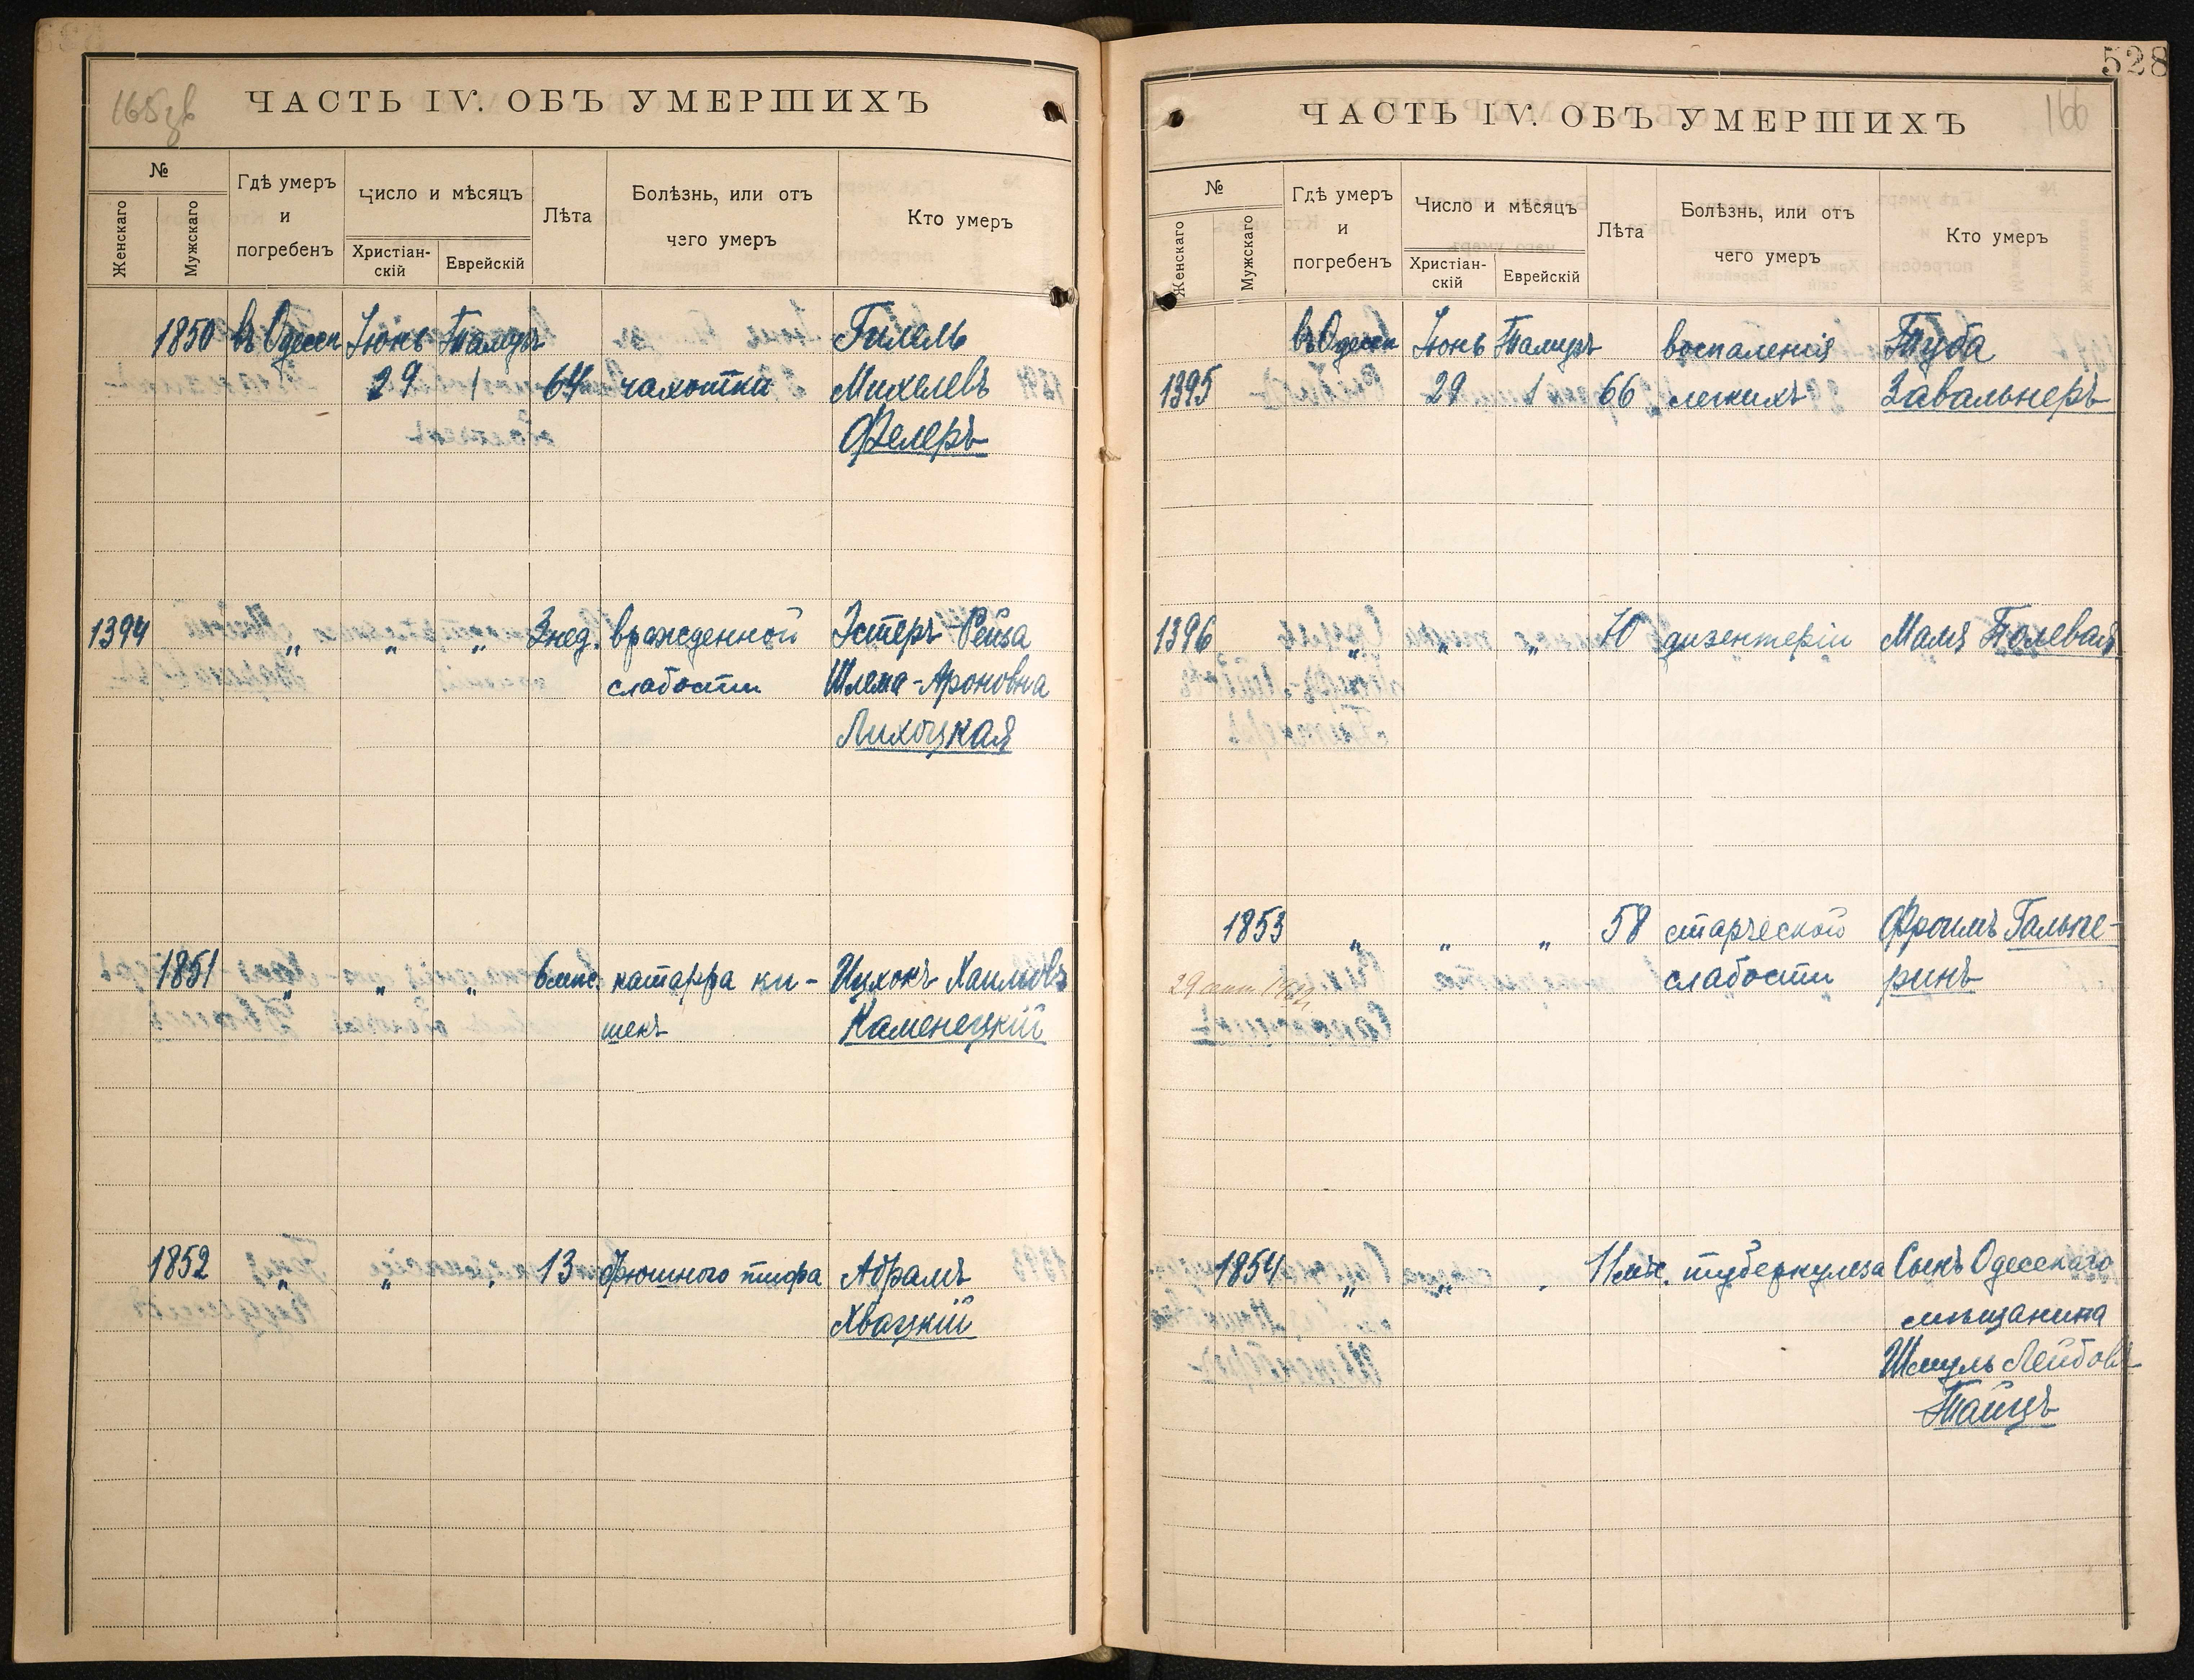 165 зв
ЧАСТЬ IV. ОБЪ УМЕРШИХЪ
№
Женскаго
Мужскаго
Гдѣ умеръ
и
погребенъ
Число и мѣсяцъ
Христіан-
скій
Еврейскій
Лѣта
Болѣзнь, или отъ
чего умеръ
Кто умеръ
1850 въ Одессѣ Іюнь Тамузъ Гилель
29 1 64 чахотки Михелевъ
Фелеръ
1394 „ „ „ 3 нед. врожденной Эстеръ-Рейза
слабости Шлема-Ароновна
Лихоцкая
1851 „ „ „ 6 мѣс. катарра ки- Ицхокъ Хаимовъ
шекъ Каменецкій
1852 „ „ „ 13 брюшного тифа Абрамъ
Хвацкій
528
166
ЧАСТЬ IV. ОБЪ УМЕРШИХЪ
№
Женскаго
Мужскаго
Гдѣ умеръ
и
погребенъ
Число и мѣсяцъ
Христіан-
скій
Еврейскій
Лѣта
Болѣзнь, или отъ
чего умеръ
Кто умеръ
въ Одессѣ Іюнь Тамузъ воспаленія Туба
1395 29 1 66 легкихъ Завальнеръ
1396 „ „ „ 70 дизентеріи Маля Полевая
1853 „ „ „ 58 старческой Фроимъ Гальпе-
слабости ринъ
29
1854 „ „ „ 11 мѣс. туберкулеза Сынъ Одесскаго
мѣщанина
Шмуль Лейбовъ
Тайцъ